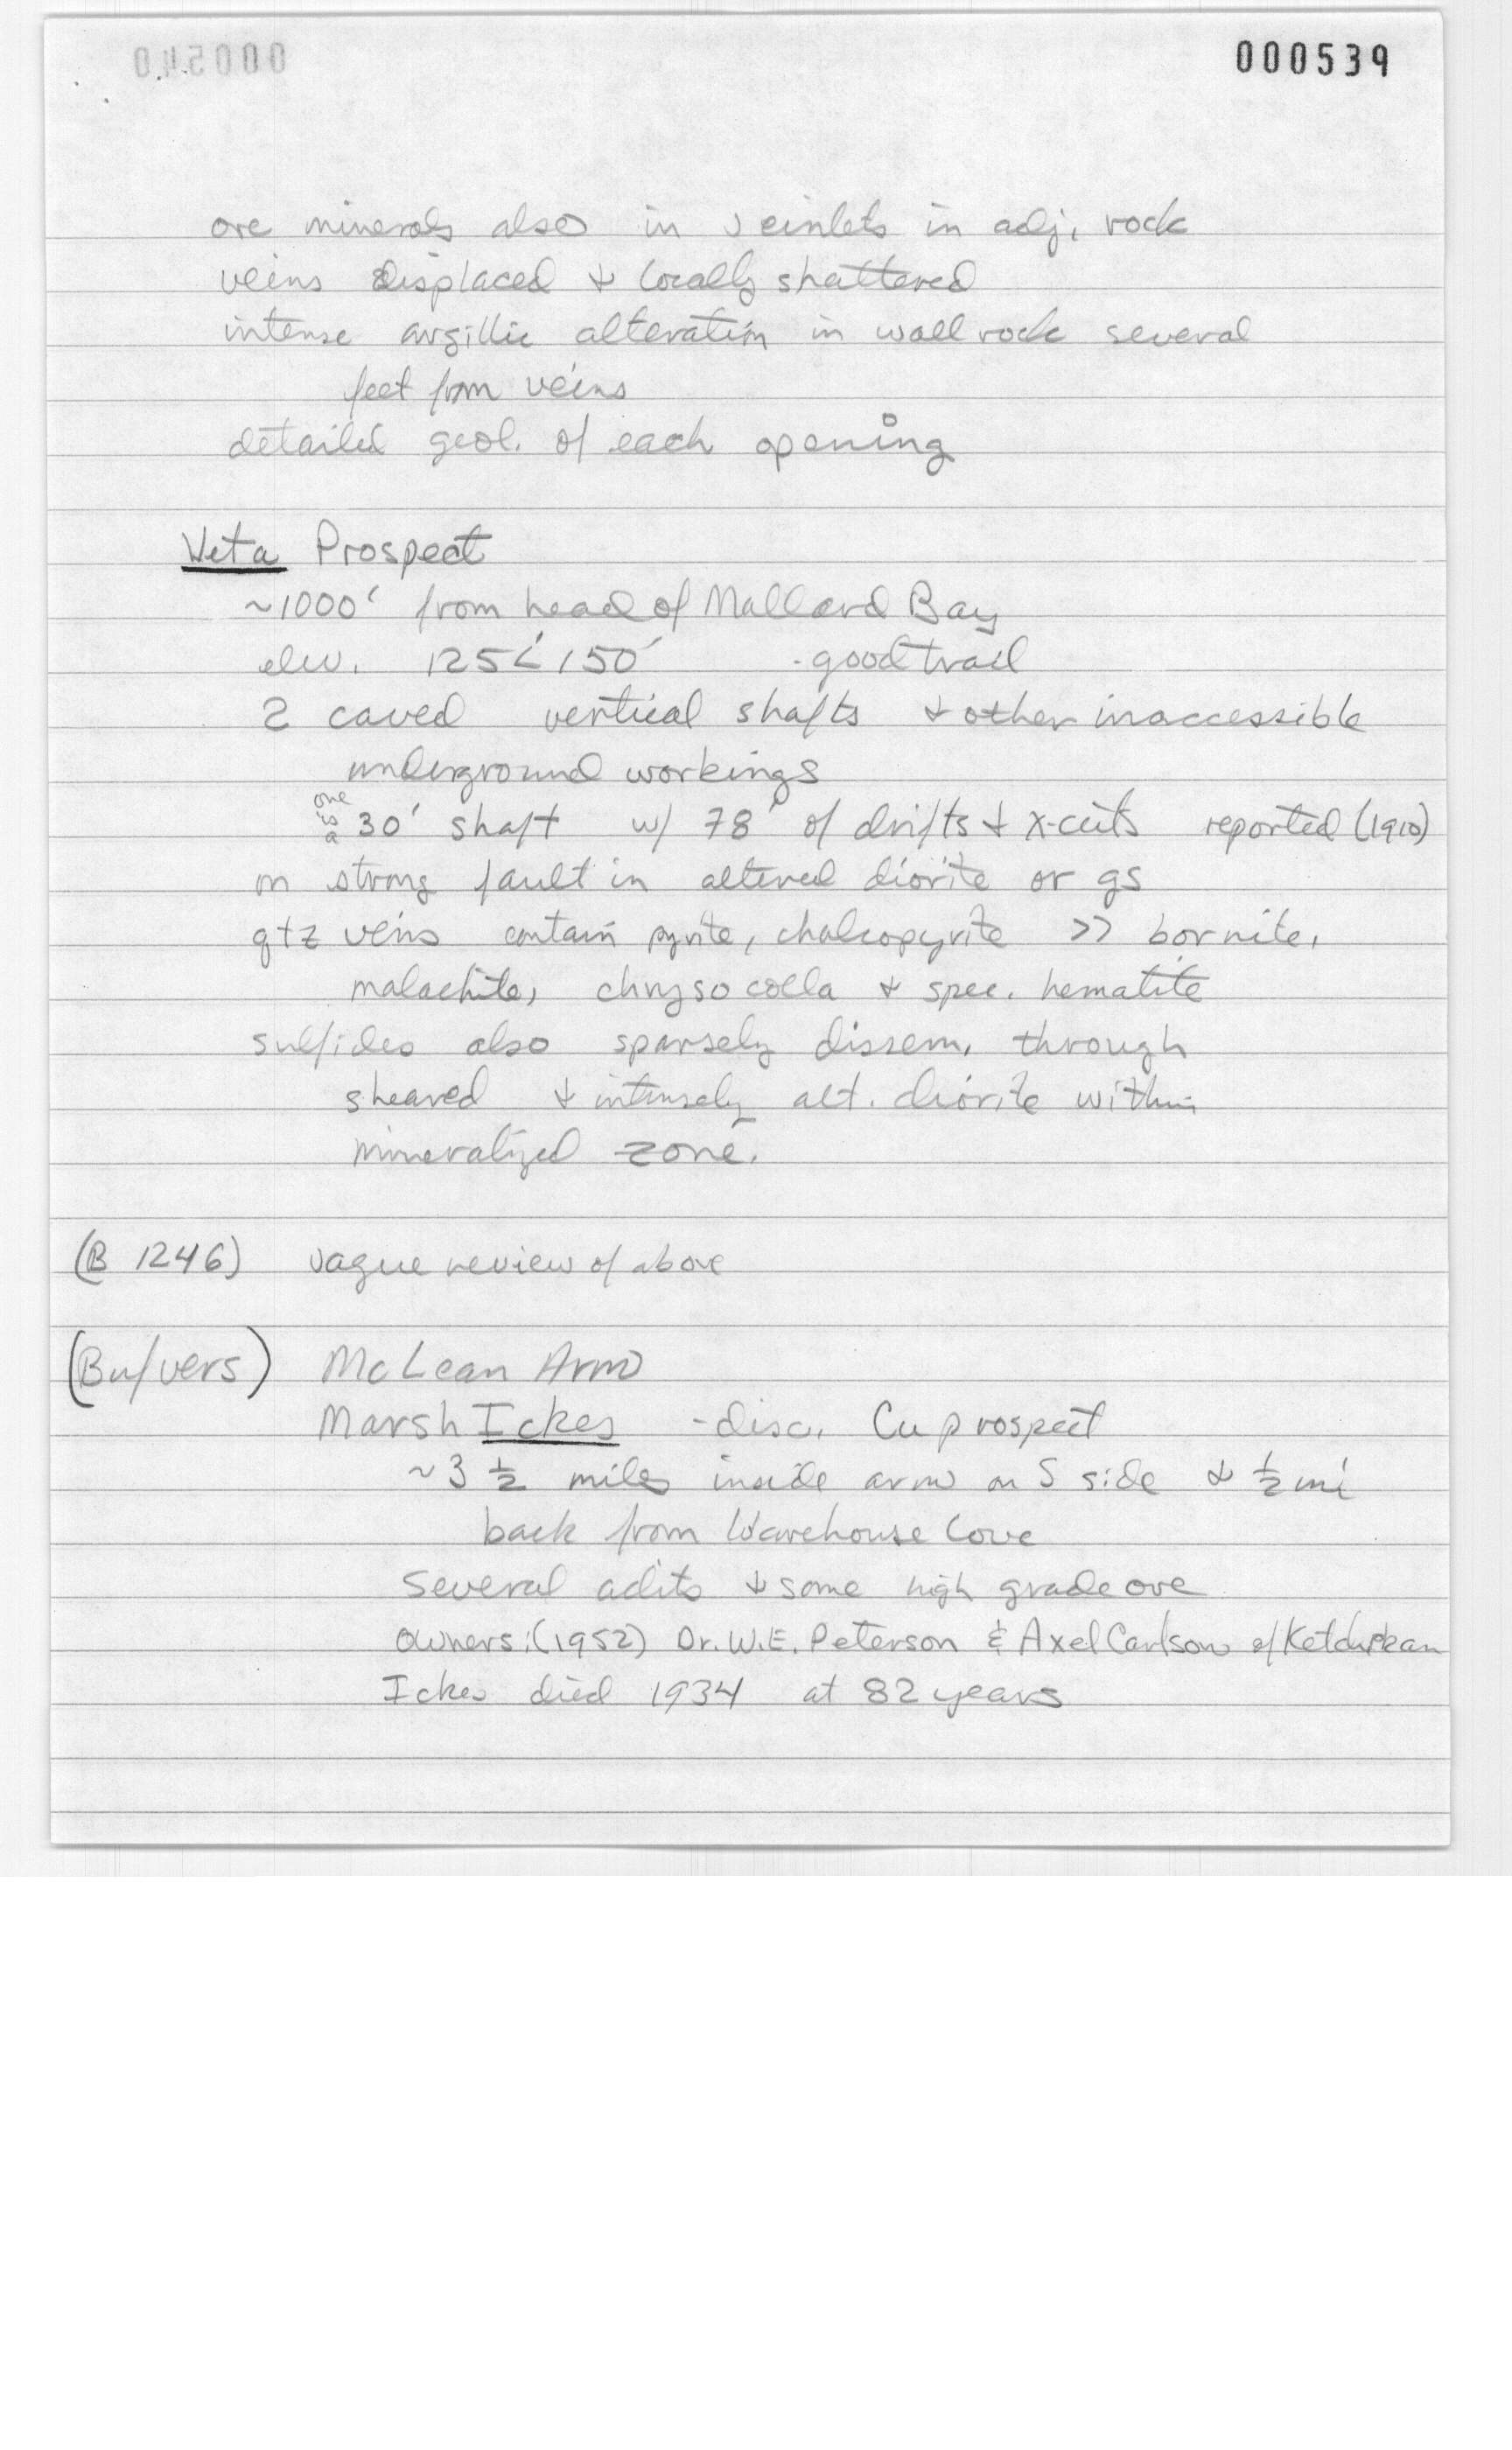 000539
ore minerals also in veinlets in adj. rock
veins displaced & locally shattered
intense argillic alteration in wall rock several
feet from veins
detailed geol. of each opening
Veta Prospect
~1000' from head of Mallard Bay
elev. 125' 150' - good trail
2 caved vertical shafts & other inaccessible
underground workings
one is a 30' shaft w/ 78' of drifts & x-cuts reported (1910)
on strong fault in altered diorite or gs
qtz veins contain pyrite, chalcopyrite >> bornite,
malachite, chrysocolla & spec. hematite
sulfides also sparsely dissem. through
sheared & intensely alt. diorite within
mineralized zone.
(B 1246) vague review of above
(Bufvers) McLean Arm
Marsh Ickes - disc. Cu prospect
~3 1/2 miles inside arm on S side & 1/2 mi
back from Warehouse Cove
Several adits & some high grade ore
owners: (1952) Dr. W.E. Peterson & Axel Carlson of Ketchikan
Ickes died 1934 at 82 years